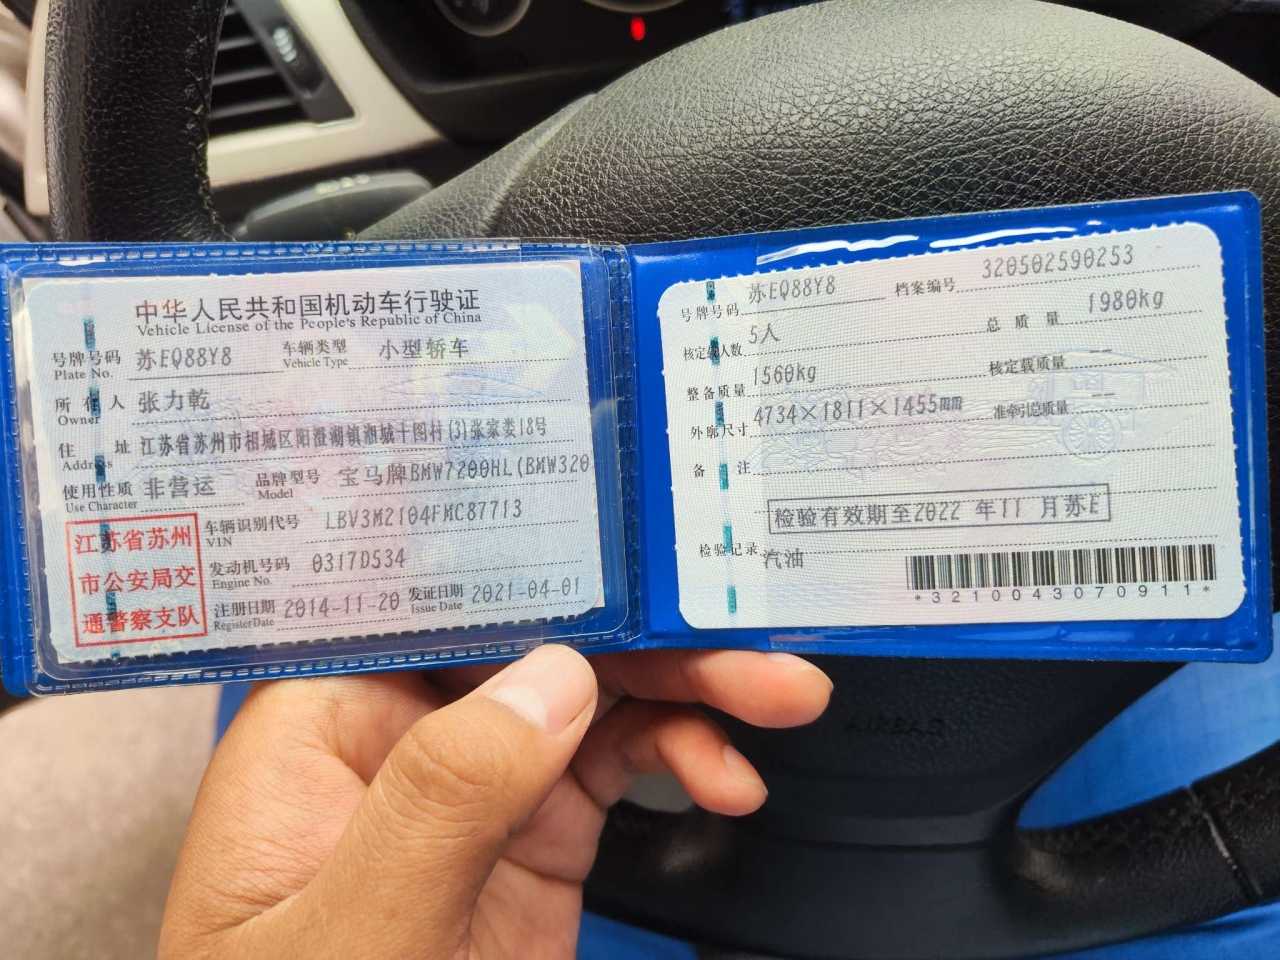 中华人民共和国机动车行驶证
Vehicle License of the People's Republic of China
号牌号码 苏EQ88Y8 车辆类型 小型轿车
Plate No. Vehicle Type
所有人 张力乾
Owner
住址 江苏省苏州市相城区阳澄湖镇湘城十图村(3)张家娄18号
Address
使用性质 非营运 品牌型号 宝马牌BMW7200HL(BMW320
Use Character Model
江苏省苏州
市公安局交
通警察支队
车辆识别代号 LBV3M2104FMC87713
VIN
发动机号码 0317D534
Engine No.
注册日期 2014-11-20 发证日期 2021-04-01
Register Date Issue Date
号牌号码 苏EQ88Y8 档案编号 320502590253
核定载人数 5人 总质量 1980kg
整备质量 1560kg 核定载质量 --
外廓尺寸 4734×1811×1455mm 准牵引总质量 --
备注
检验有效期至2022年11月苏E
检验记录 汽油
*3210043070911*